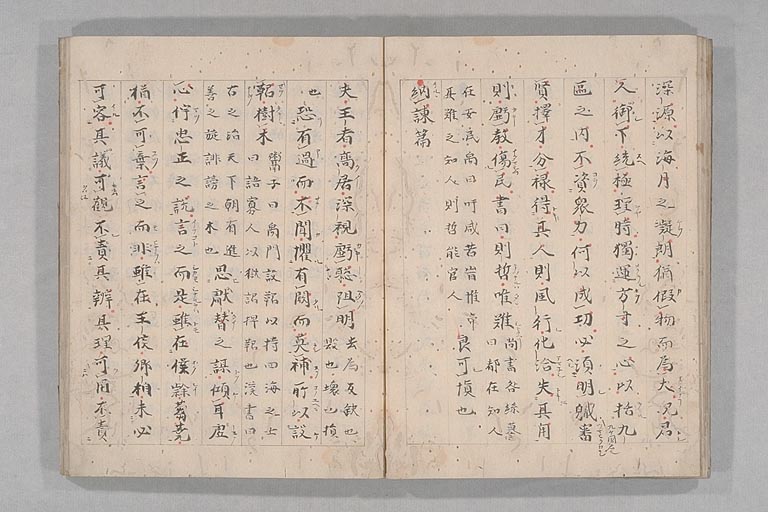 深源以海月之凝朗猶假物而為大況君
人御下統極理時獨運方寸之心以括九
區之内不資眾力何以成功必須明職審
賢擇才分祿得其人則風行化洽失其用
則虧教傷民書曰則哲惟難尚書咎繇謩曰都在知人
在安民禹曰吁咸若峕惟帝其難之知人則哲能官人
良可慎也
納諫篇
夫王者高居深視虧聰阻明去為反欮也毀也壞也損
也恐有過而不聞懼有闕而莫補所以設
鞀樹木鬻子曰禹門設鞀以待四海之士曰語寡人以獄訟揮鞀也漢書曰
古之治天下朝有進善之旌誹謗之木也思獻替之謀傾耳虛
心佇忠正之說言之而是雖在僕隸蒭蕘
猶不可棄言之而非雖在王侯卿相未必
可容其議可觀不責其辯其理可用不責